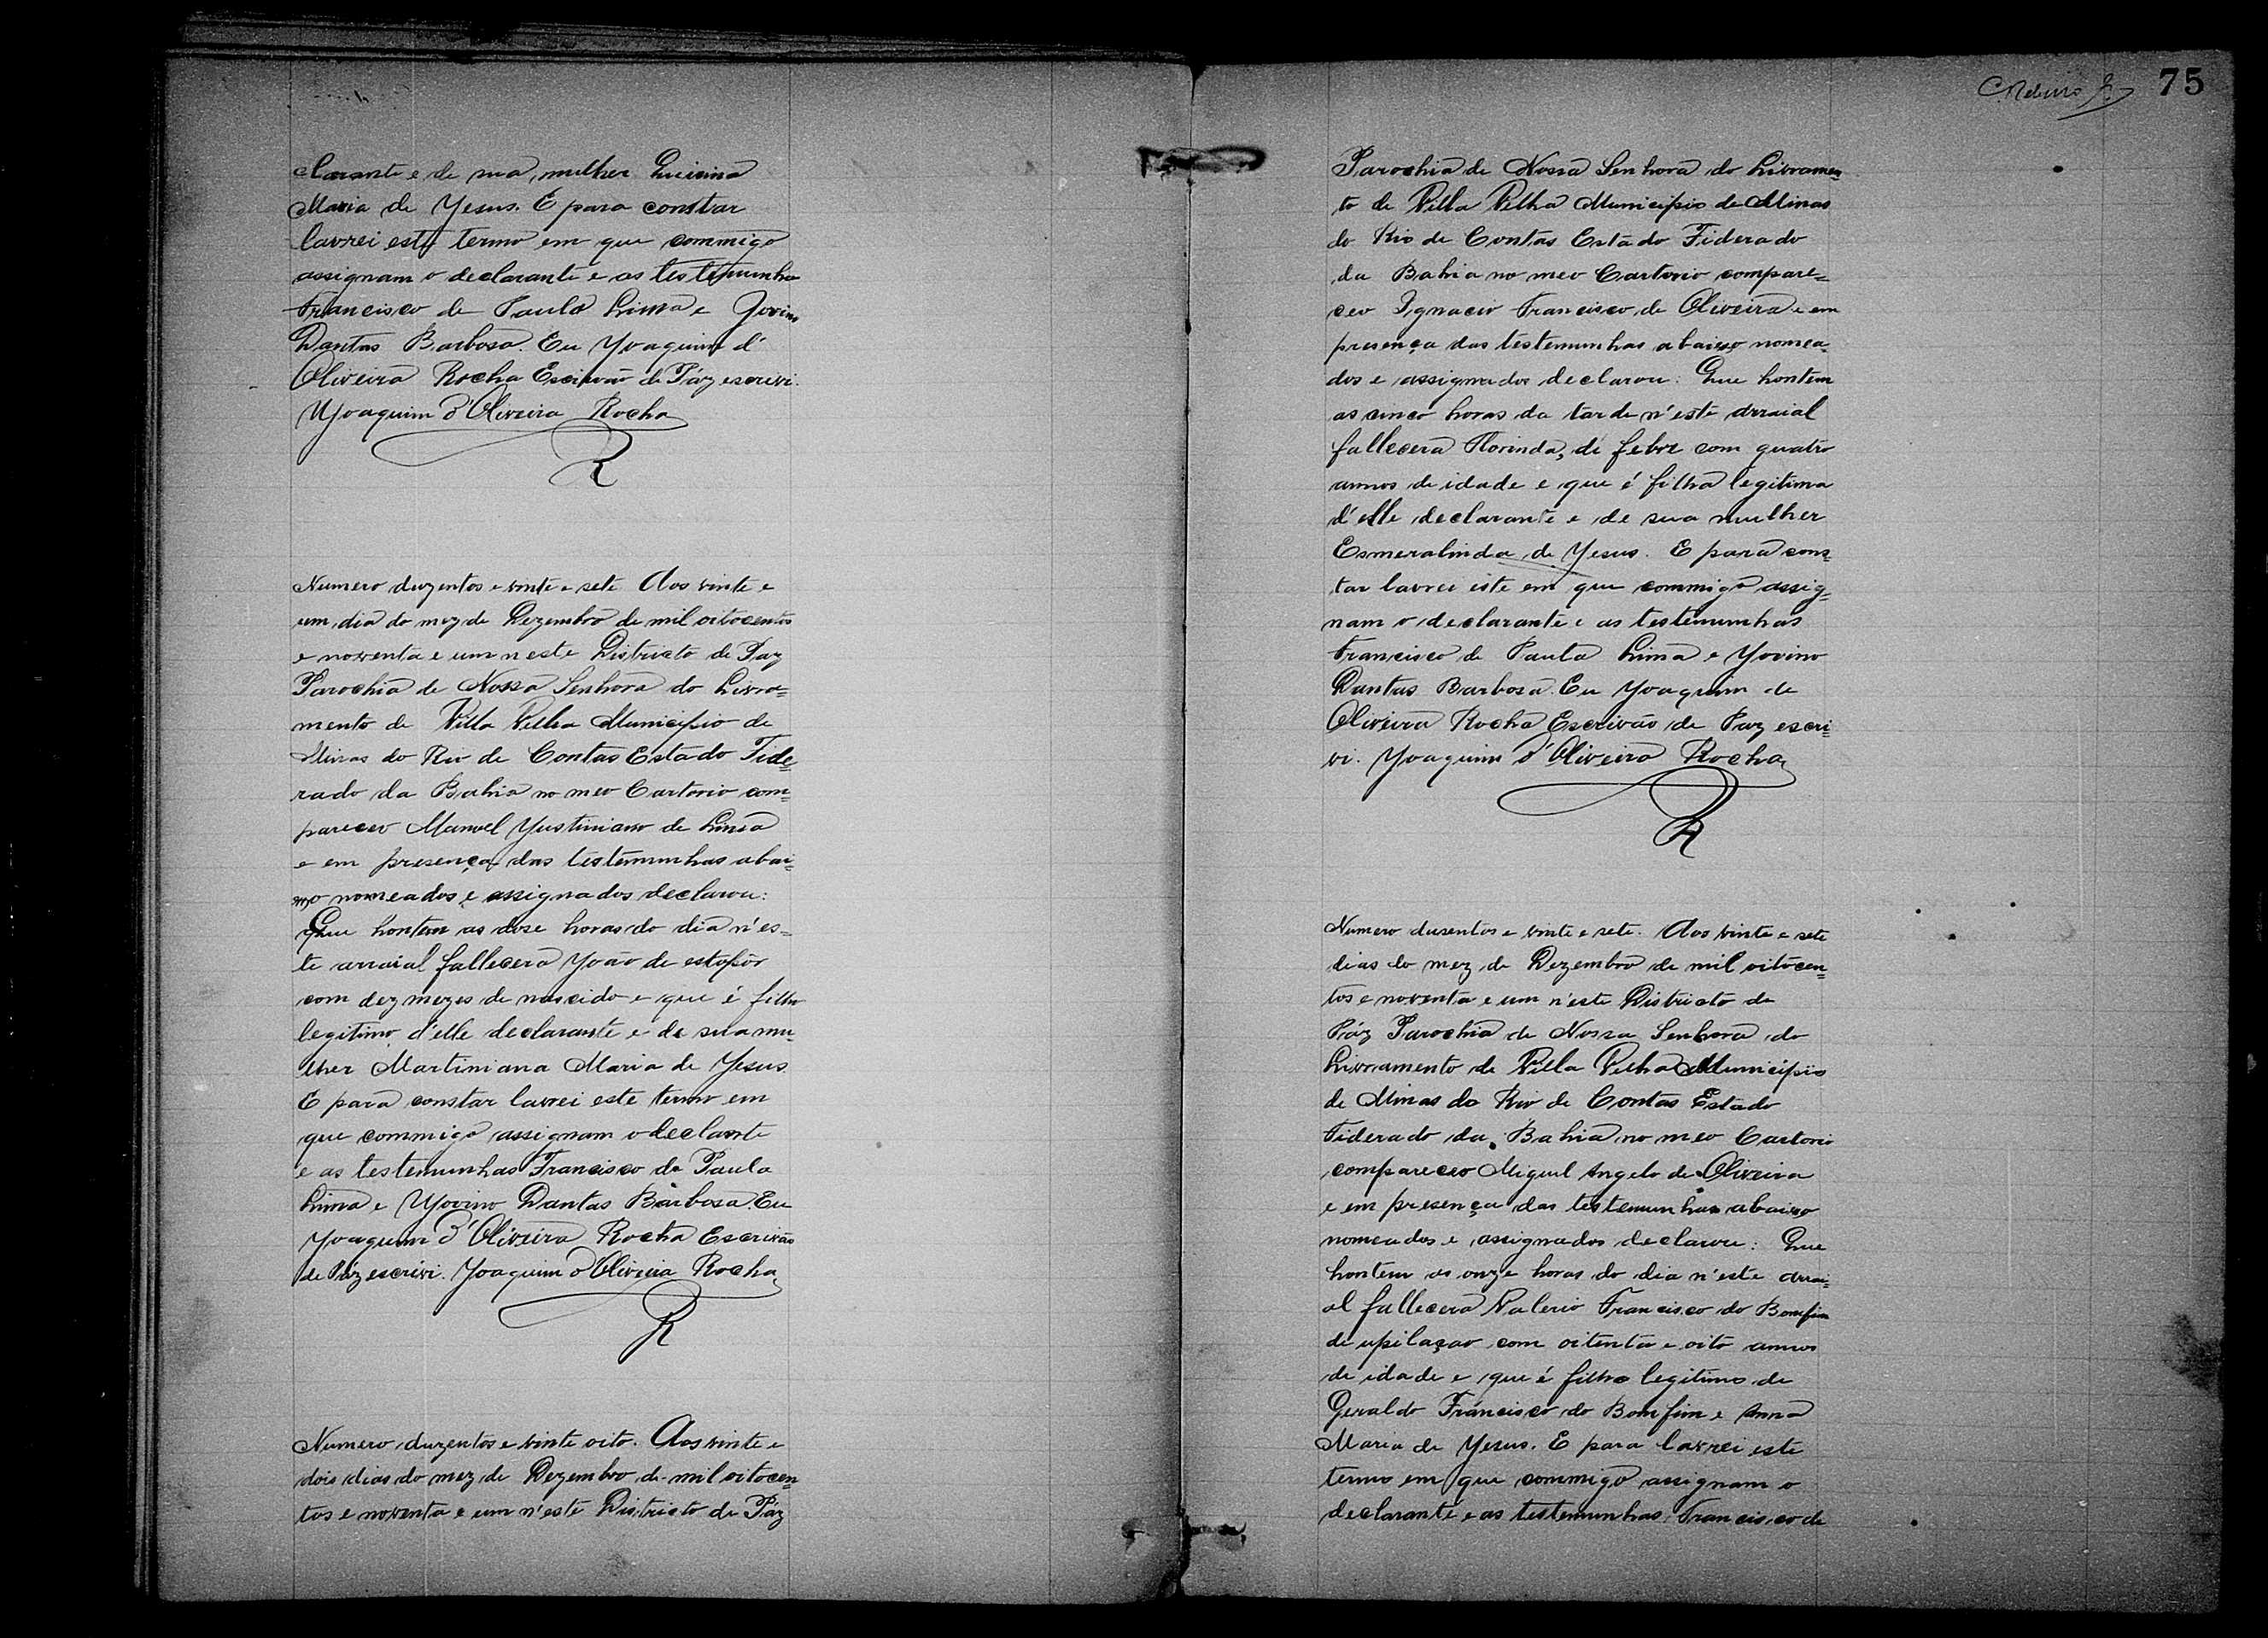 clarante e de sua mulher
Maria de Yesus. E para constar
lavrei este termo em que commigo
assignam o declarante e as testemunha
Francisco de Paula Lima e Jovino
Dantas Barbosa. Eu Yoaquim d'
Oliveira Rocha Escrivão de Páz escrivi.
Yoaquim d'Oliveira Rocha
R
Numero duzentos e vinte e sete Aos vinte e
um dia do mez de Dezembro de mil oitocentos
e noventa e um neste Districto de Paz
Parochia de Nossa Senhora do Livra=
mento de Villa Velha Municipio de
Minas do Rio de Contas Estado Fide=
rado da Bahia no meo Cartorio com=
pareceo Manoel Yustiniano de Lima
e em presença das testemunhas abai=
xo nomeados e assignados declarou:
Que hontem as dose horas do dia n'es=
te arraial fallecera Yoão de estopôr
com dez mezes de nascido e que é filho
legitimo d'elle declarante e de sua mu=
lher Martiniana Maria de Yesus.
E para constar lavrei este termo em
que commigo assignam o declarnte
e as testemunhas Francisco de Paula
Lima e Yovino Dantas Barbosa. Eu
Yoaquim d'Oliveira Rocha Escrivão
de Páz escrivi. Yoaquim d'Oliveira Rocha
R
Numero duzentos e vinte oito. Aos vinte e
dois dias do mez de Dezembro de mil oitocen=
tos e noventa e um n'este Districto de Páz
75
Parochia de Nossa Senhora do Livramen=
to de Villa Velha Municipio de Minas
do Rio de Contas Estado Fiderado
da Bahia no meo Cartorio compare=
ceo Ignacio Francisco de Oliveira e em
presença das testemunhas abaixo nomea=
dos e assignados declarou: Que hontem
as cinco horas da tarde n'este arraial
fallecera Florinda, de febre com quatro
annos de idade e que é filha legitima
d'elle declarante e de sua mulher
Esmeralinda de Yesus. E para cons=
tar lavrei este em que commigo assig=
nam o declarante e as testemunhas
Francisco de Paula Lima e Yovino
Dantas Barbosa. Eu Yoaquim de
Oliveira Rocha Escrivão de Paz escri=
vi. Yoaquim d'Oliveira Rocha
R
Numero dusentos e vinte e sete. Aos vinte e sete
dias do mez de Dezembro de mil oitocen=
tos e noventa e um n'este Districto de
Páz Parochia de Nossa Senhora do
Livramento de Villa Velha Municipio
de Minas do Rio de Contas Estado
Fiderado da Bahia no meo Cartorio
compareceo Miguel Angelo de Oliveira
e em presença das testemunhas abaixo
nomeados e assignados declarou: Que
hontem as onze horas do dia n'este arrai=
al fallecera Valerio Francisco do Bomfim
de upilaçao com oitenta e oito annos
de idade e que é filho legitimo de
Geraldo Francisco do Bomfim e Anna
Maria de Yesus. E para lavrei este
termo em que commigo assignam o
declarante e as testemunhas Francisco de